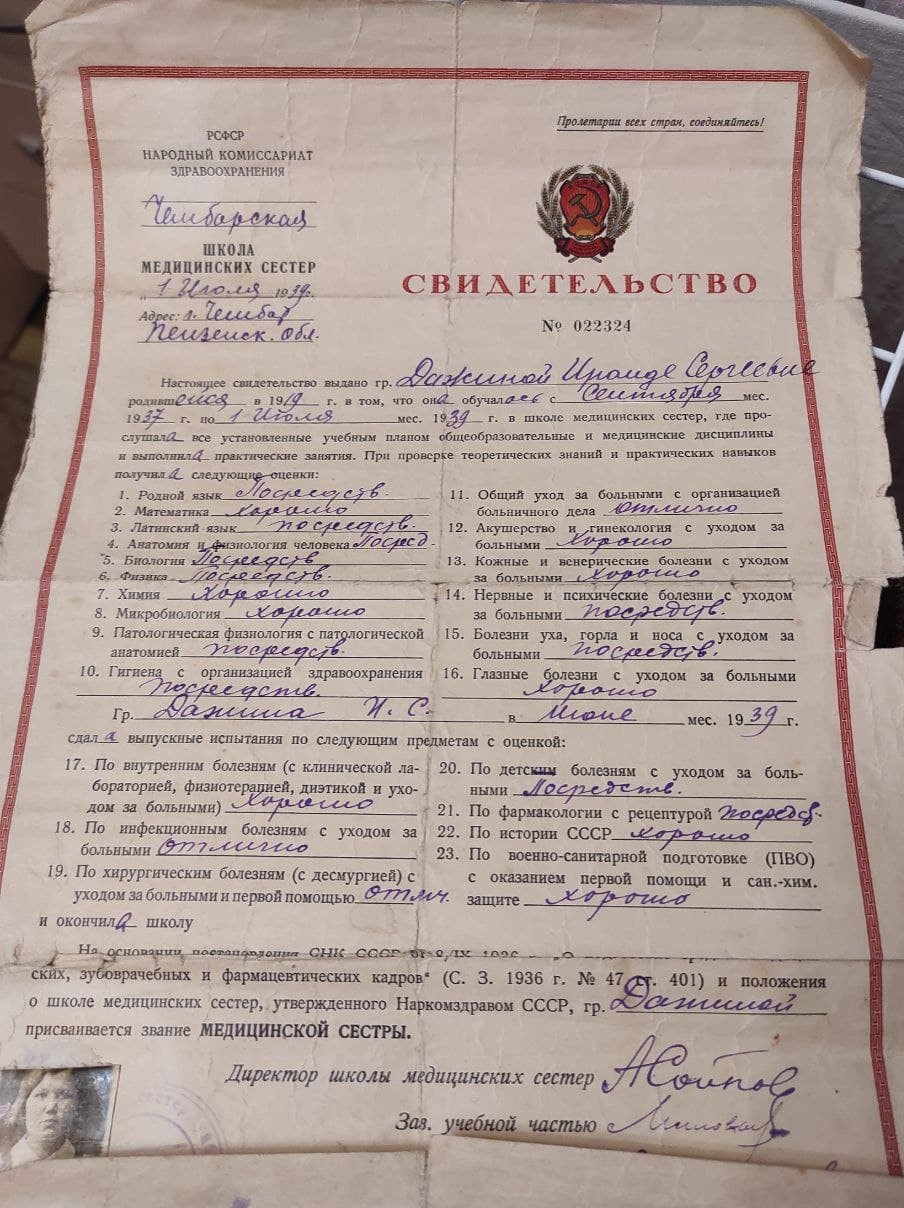 Пролетарии всех стран, соединяйтесь!
РСФСР
НАРОДНЫЙ КОМИССАРИАТ
ЗДРАВООХРАНЕНИЯ
Чембарская
ШКОЛА
МЕДИЦИНСКИХ СЕСТЕР
„ 1 Июля 1939г.
Адрес: г. Чембар
Пензенск. Обл.
СВИДЕТЕЛЬСТВО
№ 022324
Настоящее свидетельство выдано гр. Дажиной Ираиде Сергеевне
родившейся в 1919 г. в том, что она обучалась с Сентября мес.
1937 г. по 1 Июля мес. 1939 г. в школе медицинских сестер, где про-
слушала все установленные учебным планом общеобразовательные и медицинские дисциплины
и выполнила практические занятия. При проверке теоретических знаний и практических навыков
получила следующие оценки:
1. Родной язык Посредств.
2. Математика хорошо
3. Латинский язык посредств.
4. Анатомия и физиология человека Посред.
5. Биология Посредств
6. Физика Посредств.
7. Химия Хорошо
8. Микробиология хорошо
9. Патологическая физиология с патологической
анатомией посредств.
10. Гигиена с организацией здравоохранения
Посредств.
11. Общий уход за больными с организацией
больничного дела отлично
12. Акушерство и гинекология с уходом за
больными Хорошо
13. Кожные и венерические болезни с уходом
за больными Хорошо
14. Нервные и психические болезни с уходом
за больными посредств.
15. Болезни уха, горла и носа с уходом за
больными посредств.
16. Глазные болезни с уходом за больными
Хорошо
Гр. Дажина И. С. в Июне мес. 1939 г.
сдала выпускные испытания по следующим предметам с оценкой:
17. По внутренним болезням (с клинической ла-
бораторией, физиотерапией, диэтикой и ухо-
дом за больными) Хорошо
18. По инфекционным болезням с уходом за
больными отлично
19. По хирургическим болезням (с десмургией) с
уходом за больными и первой помощью отлич.
20. По детским болезням с уходом за боль-
ными Посредств.
21. По фармакологии с рецептурой посредств.
22. По истории СССР хорошо
23. По военно-санитарной подготовке (ПВО)
с оказанием первой помощи и сан.-хим.
защите хорошо
и окончила школу
На основании постановления СНК СССР от 8/IX 1936
ских, зубоврачебных и фармацевтических кадров" (С. З. 1936 г. № 47 ст. 401) и положения
о школе медицинских сестер, утвержденного Наркомздравом СССР, гр. Дажиной
присваивается звание МЕДИЦИНСКОЙ СЕСТРЫ.
Директор школы медицинских сестер
Зав. учебной частью